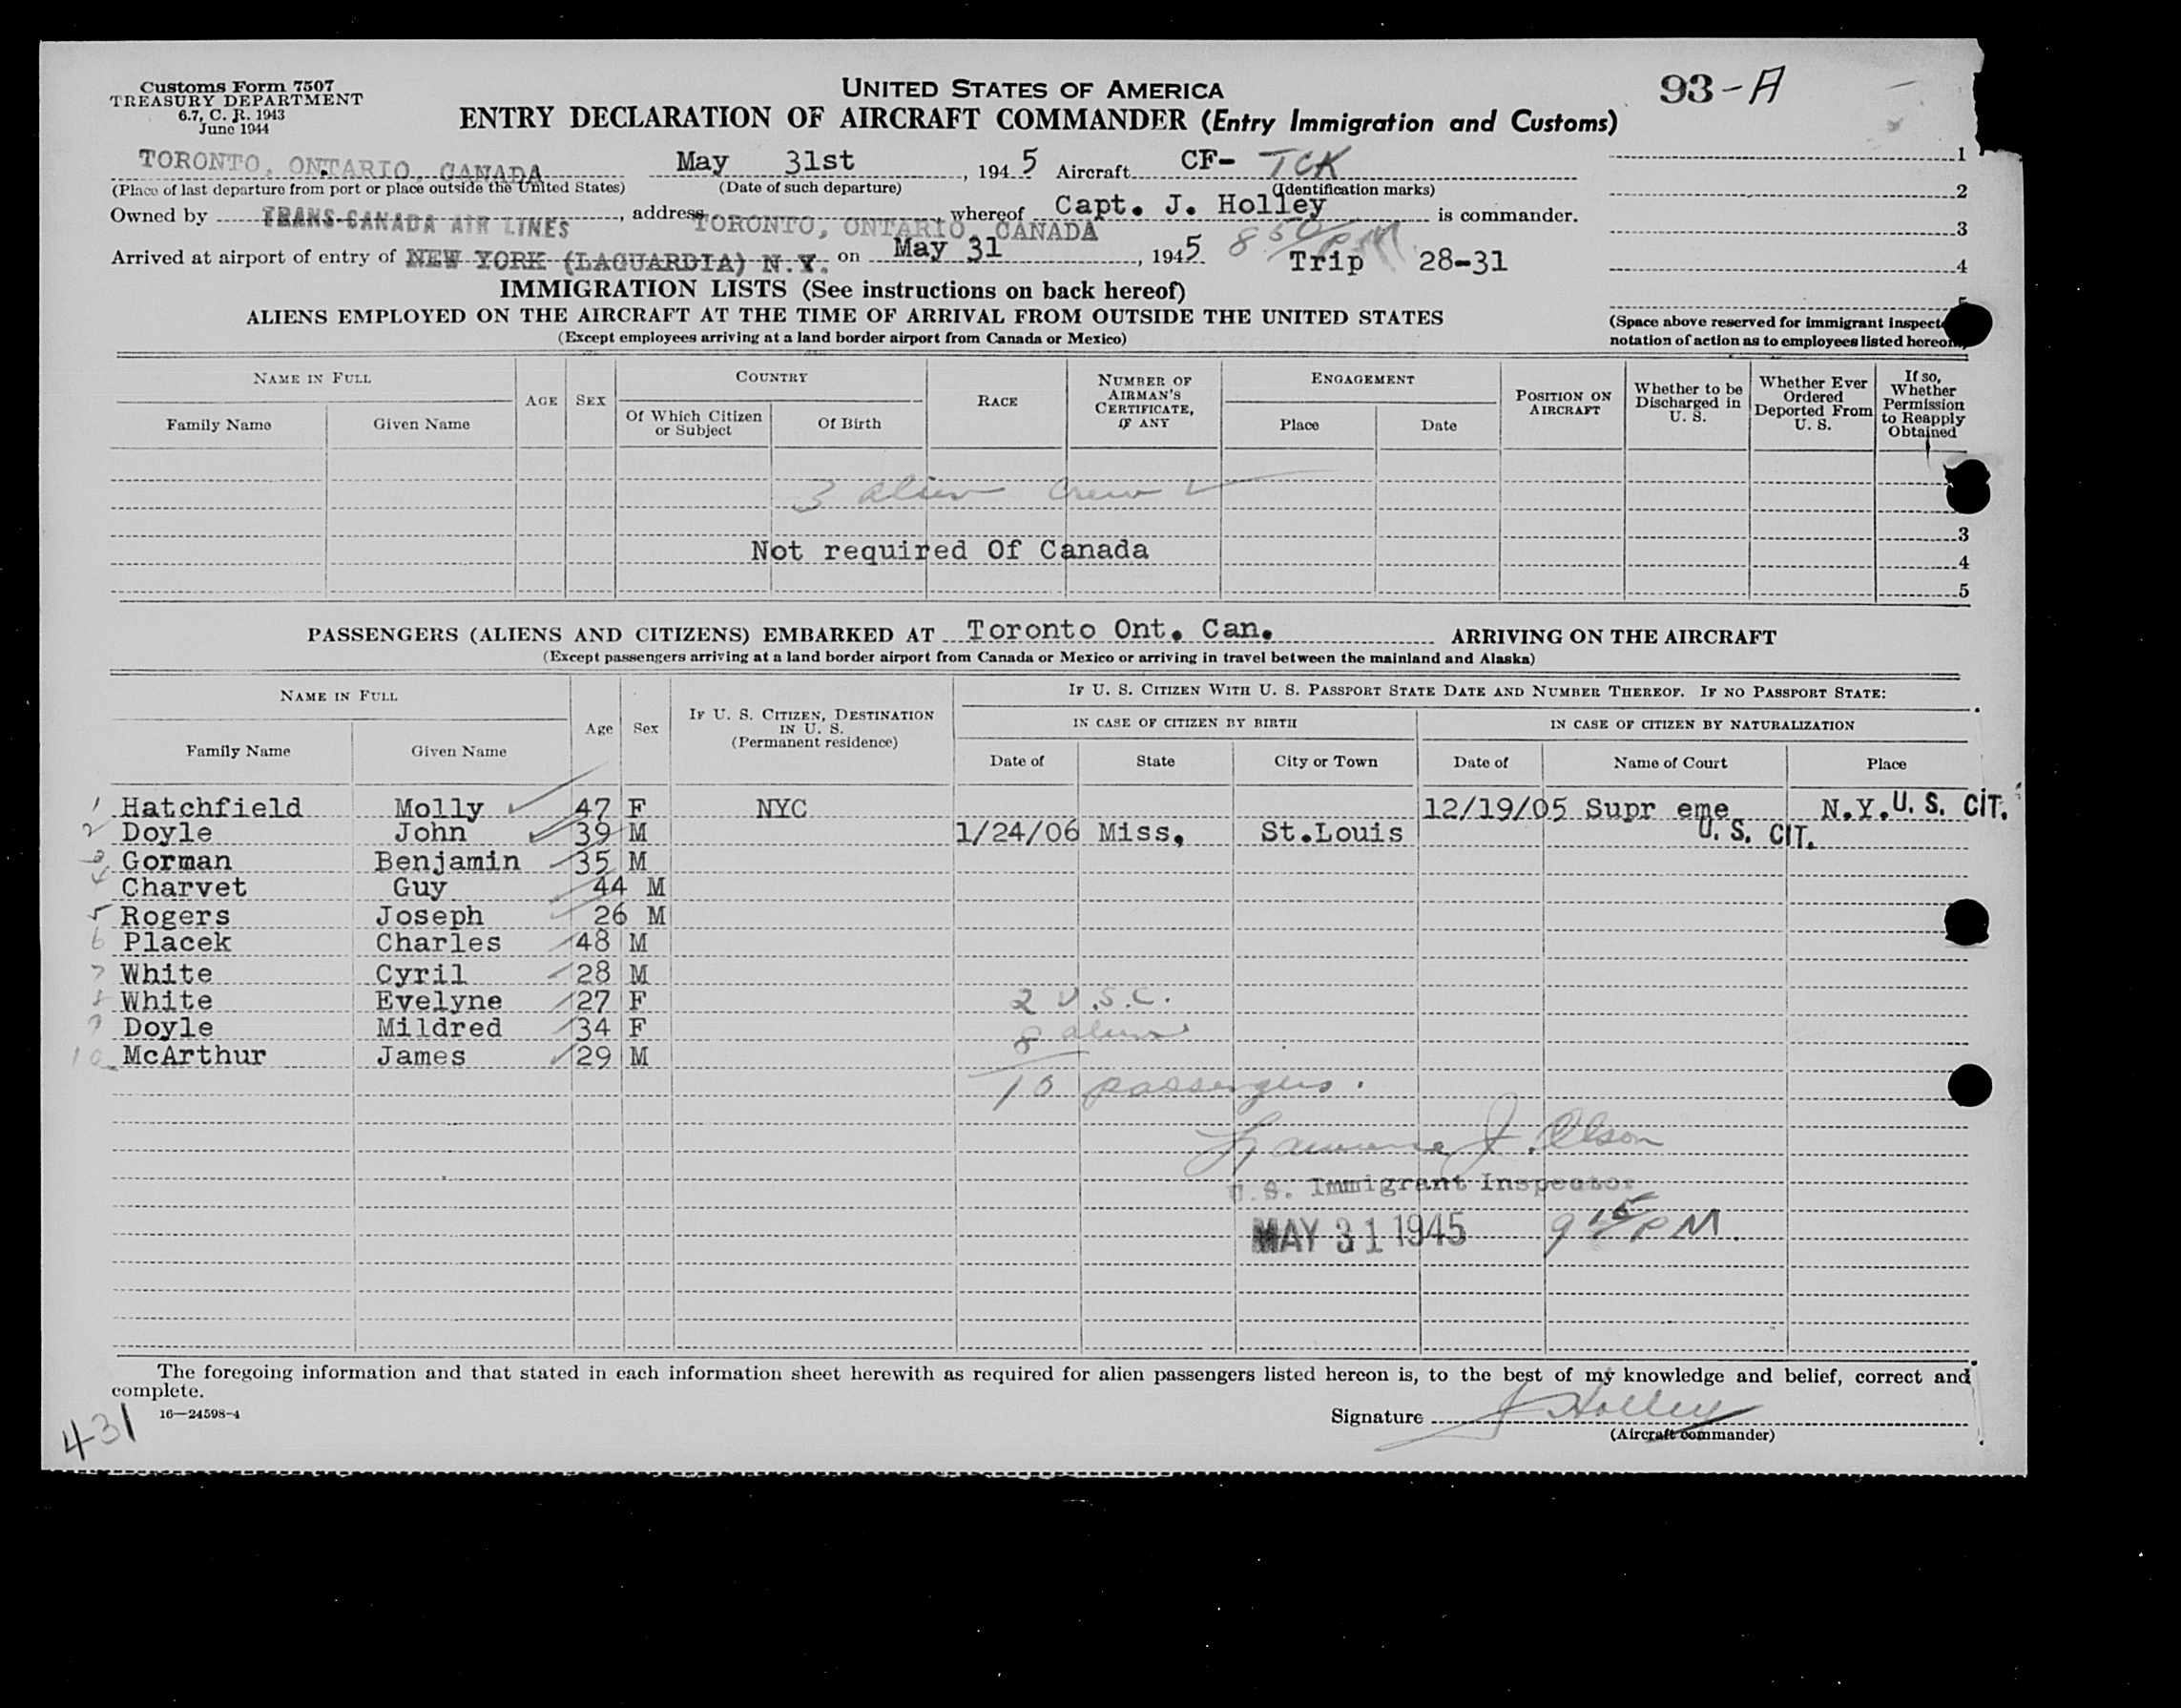 Customs Form 7507
TREASURY DEPARTMENT
6.7, C. R. 1943
June 1944
UNITED STATES OF AMERICA
ENTRY DECLARATION OF AIRCRAFT COMMANDER (Entry Immigration and Customs)
93-A
TORONTO, ONTARIO, CANADA May 31st, 1945 Aircraft CF- TCK
(Place of last departure from port or place outside the United States) (Date of such departure) (Identification marks)
Owned by TRANS-CANADA AIR LINES, address TORONTO, ONTARIO, CANADA, whereof Capt. J. Holley is commander.
Arrived at airport of entry of NEW YORK (LAGUARDIA) N.Y. on May 31, 1945 8 50 PM Trip 28-31
1
2
3
4
5
IMMIGRATION LISTS (See instructions on back hereof)
ALIENS EMPLOYED ON THE AIRCRAFT AT THE TIME OF ARRIVAL FROM OUTSIDE THE UNITED STATES
(Except employees arriving at a land border airport from Canada or Mexico)
(Space above reserved for immigrant
notation of action as to employees listed
NAME IN FULL AGE SEX COUNTRY RACE NUMBER OF AIRMAN'S CERTIFICATE, IF ANY ENGAGEMENT POSITION ON AIRCRAFT Whether to be Discharged in U. S. Whether Ever Ordered Deported From U. S. If so, Whether Permission to Reapply Obtained
Family Name Given Name Of Which Citizen or Subject Of Birth Place Date
3 alien crew
3
Not required Of Canada
4
5
PASSENGERS (ALIENS AND CITIZENS) EMBARKED AT Toronto Ont. Can. ARRIVING ON THE AIRCRAFT
(Except passengers arriving at a land border airport from Canada or Mexico or arriving in travel between the mainland and Alaska)
NAME IN FULL Age Sex IF U. S. CITIZEN, DESTINATION IN U. S. (Permanent residence) IF U. S. CITIZEN WITH U. S. PASSPORT STATE DATE AND NUMBER THEREOF. IF NO PASSPORT STATE:
IN CASE OF CITIZEN BY BIRTH IN CASE OF CITIZEN BY NATURALIZATION
Family Name Given Name Date of State City or Town Date of Name of Court Place
1 Hatchfield Molly 47 F NYC 12/19/05 Supr eme N.Y. U. S. CIT.
2 Doyle John 39 M 1/24/06 Miss, St.Louis U. S. CIT.
3 Gorman Benjamin 35 M
4 Charvet Guy 44 M
5 Rogers Joseph 26 M
6 Placek Charles 48 M
7 White Cyril 28 M
8 White Evelyne 27 F 2 U.S.C.
9 Doyle Mildred 34 F 8 aliens
10 McArthur James 29 M
10 passengers.
Lawrence J. Olson
U.S. Immigrant Inspector
MAY 31 1945 9 15 PM.
The foregoing information and that stated in each information sheet herewith as required for alien passengers listed hereon is, to the best of my knowledge and belief, correct and
complete.
16—24598-4
431
Signature J Holley
(Aircraft commander)